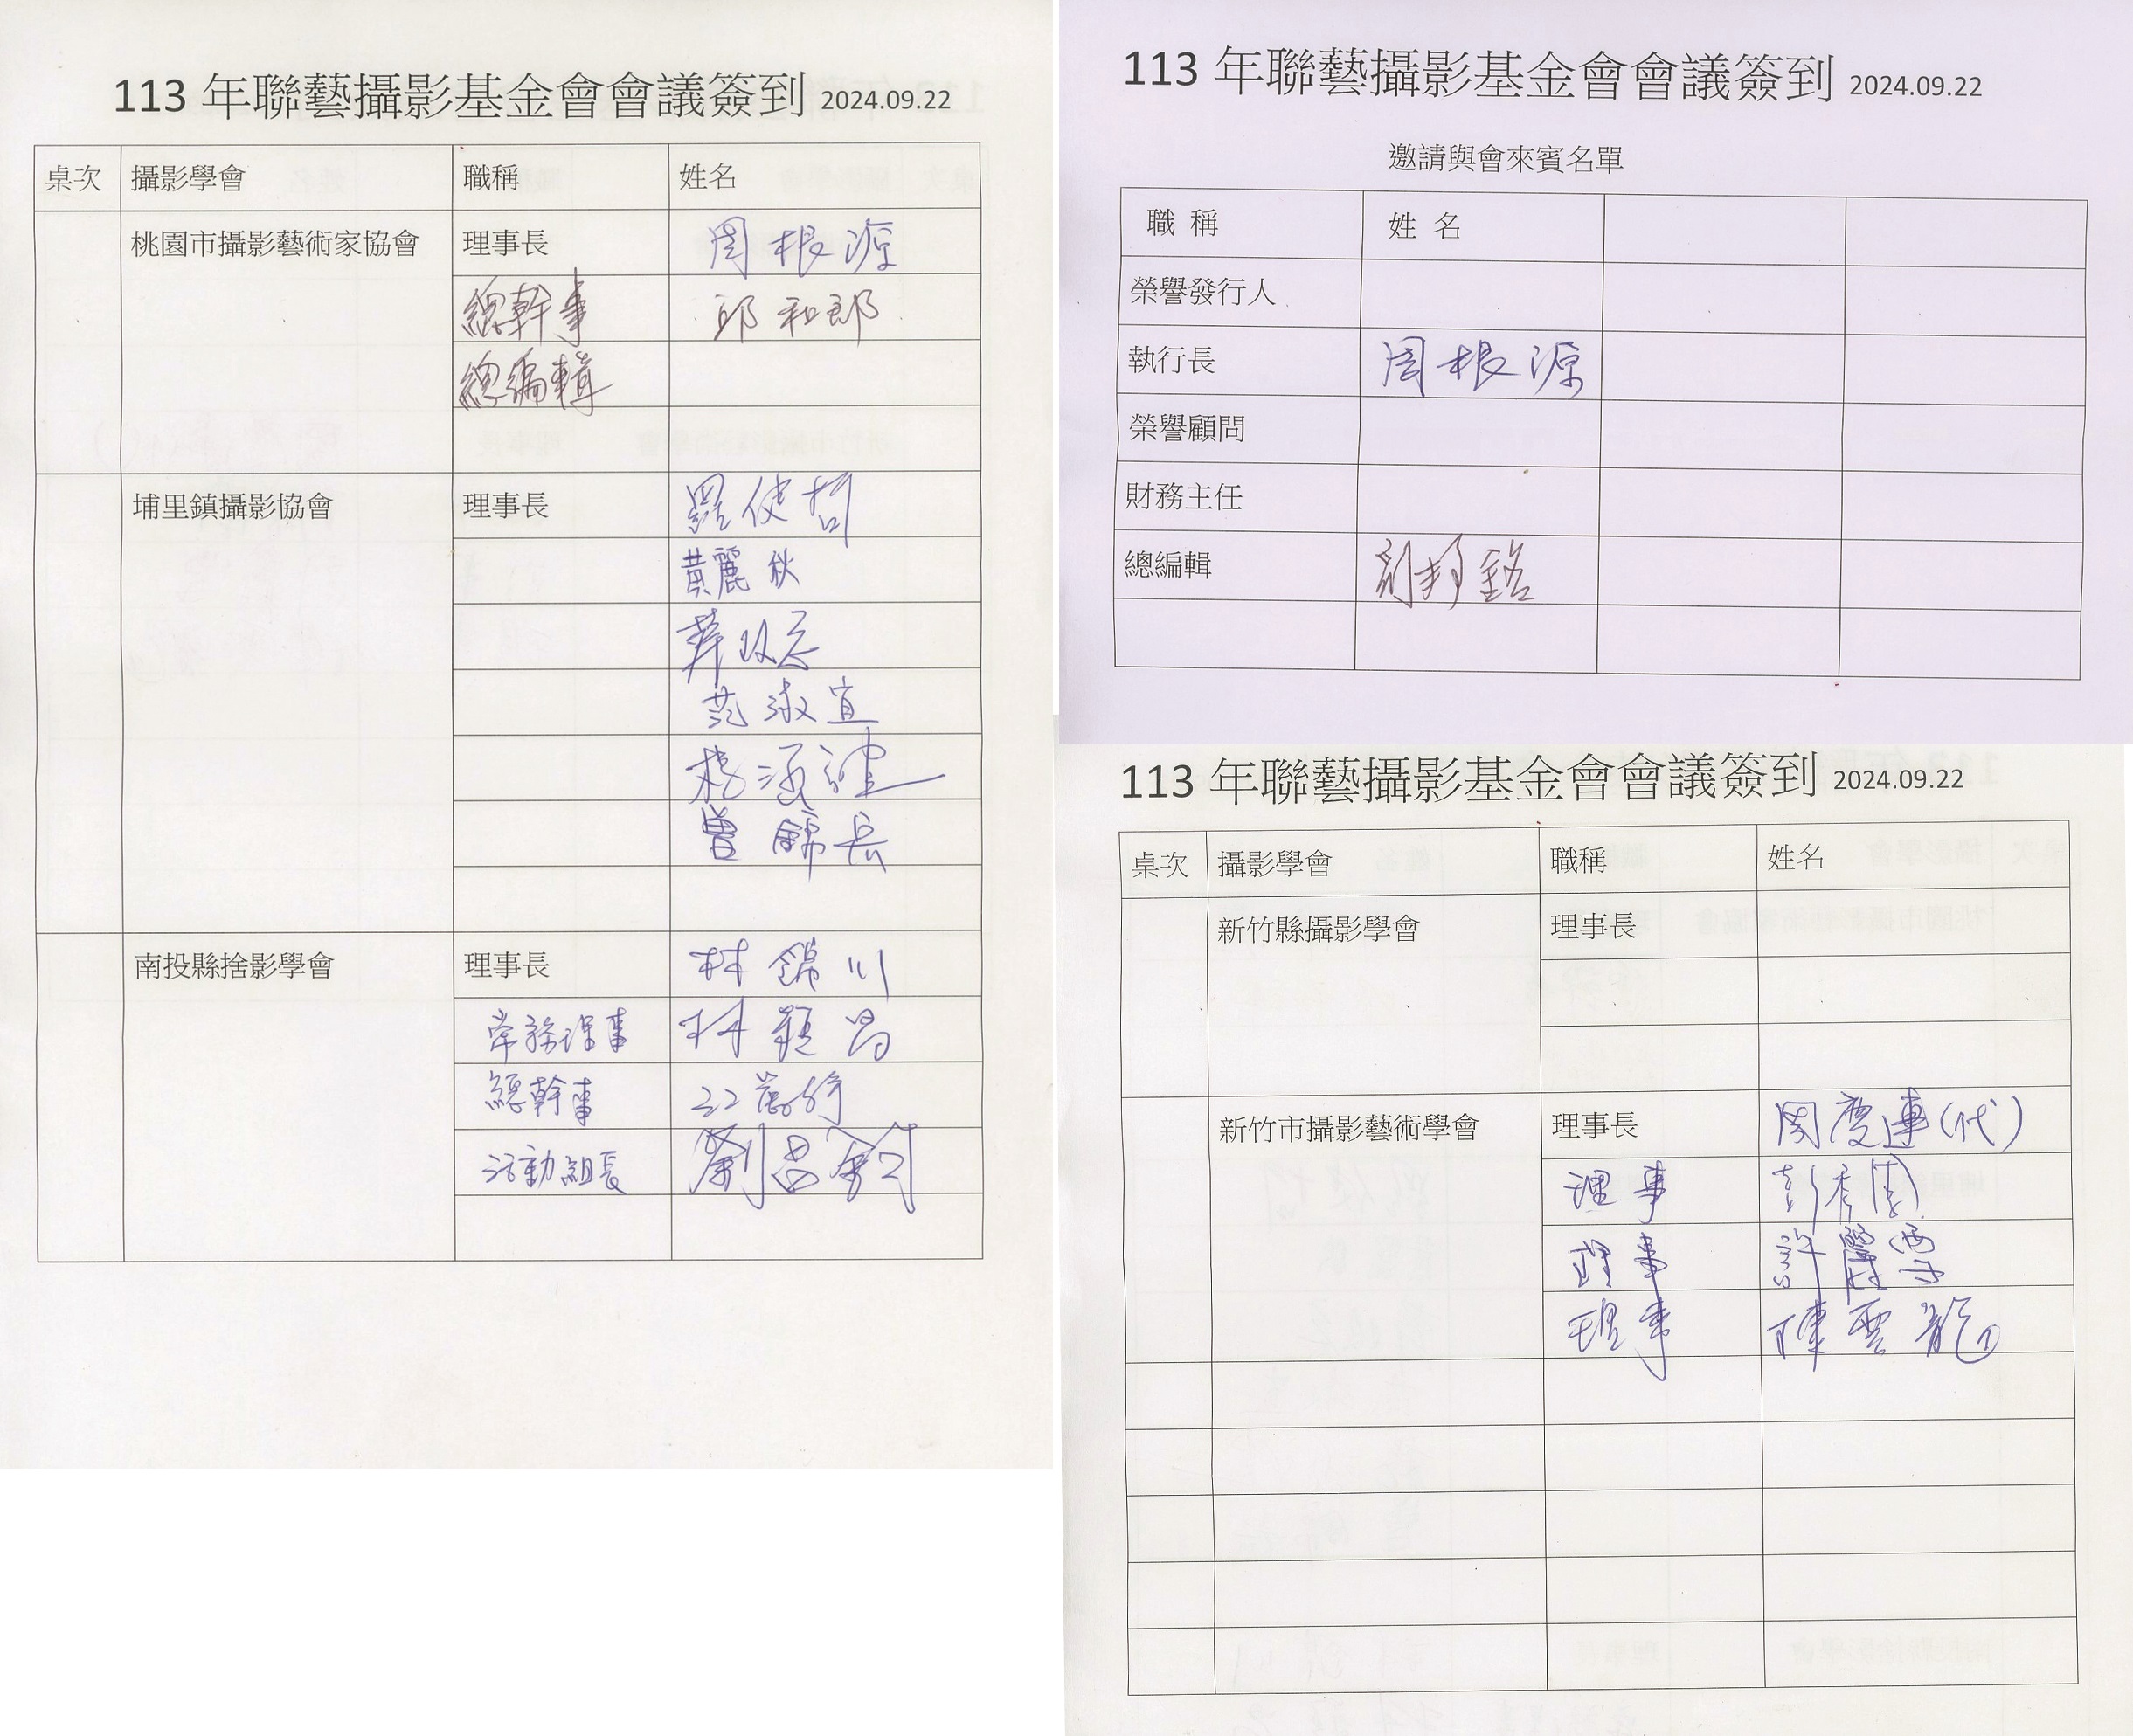 113 年聯藝攝影基金會會議簽到 2024.09.22
桌次 攝影學會 職稱 姓名
桃園市攝影藝術家協會 理事長 周根源
總幹事 邱和郎
總編輯
埔里鎮攝影協會 理事長 羅使哲
黃麗
范淑宜
曾錦長
南投縣捨影學會 理事長 林錦川
常務理事 林穎
總幹事
活動組長 劉
113 年聯藝攝影基金會會議簽到 2024.09.22
邀請與會來賓名單
職 稱 姓 名
榮譽發行人
執行長 周根源
榮譽顧問
財務主任
總編輯
113 年聯藝攝影基金會會議簽到 2024.09.22
桌次 攝影學會 職稱 姓名
新竹縣攝影學會 理事長
新竹市攝影藝術學會 理事長 周慶連(代)
理事 彭
理事 許
理事 陳雲龍